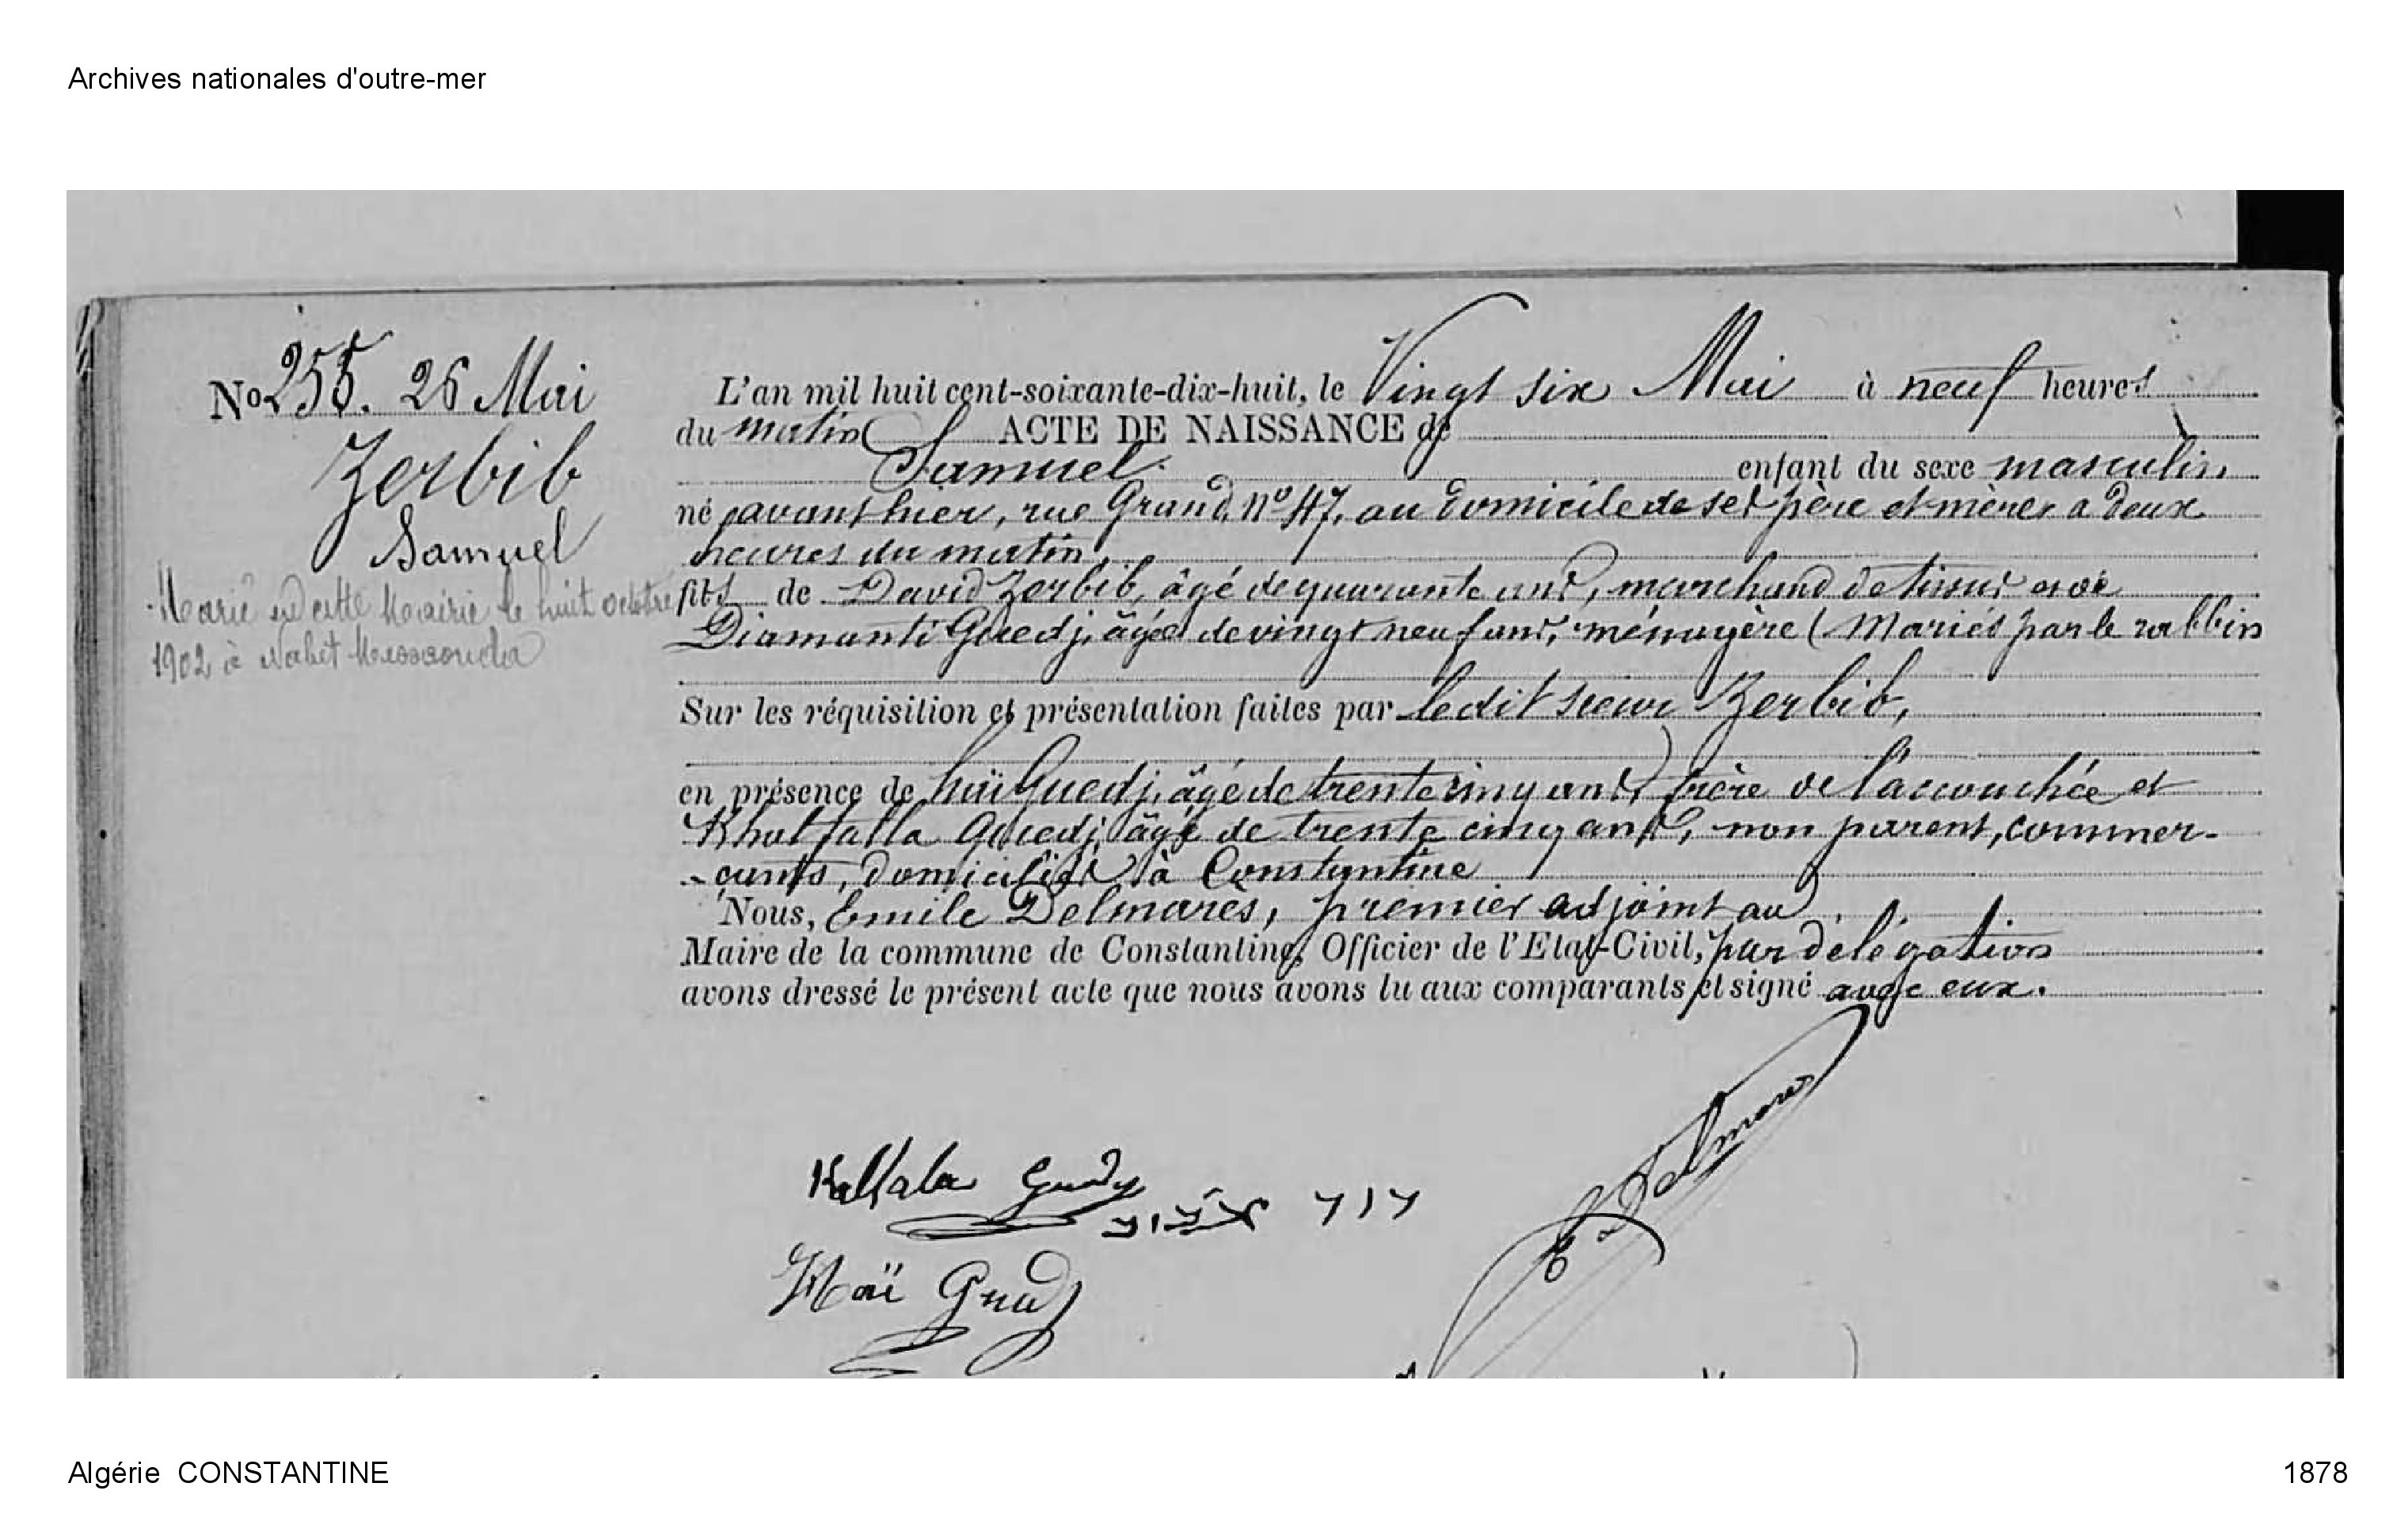 Archives nationales d'outre-mer
No 255. 26 Mai
Zerbib
Samuel
Marié en cette Mairie le huit octobre
1902 à Nabet Messaouda
L'an mil huit cent-soixante-dix-huit, le Vingt six Mai à neuf heures
du matin ACTE DE NAISSANCE de
Samuel enfant du sexe masculin
né avant hier, rue Grand, nº 47, au domicile de ses père et mère, à deux
heures du matin,
fils de David Zerbib, âgé de quarante ans, marchand de tissus et de
Diamanti Guedj, âgée de vingt neuf ans, ménagère (Mariés par le rabbin
Sur les réquisition et présentation faites par ledit sieur Zerbib,
en présence de Guedj, âgé de trente cinq ans, frère de l'accouchée et
Khalfalla Guedj, âgé de trente cinq ans, non parent, commer-
-çants, domiciliés à Constantine
Nous, Emile Delmarès, premier adjoint au
Maire de la commune de Constantine, Officier de l'Etat-Civil, par délégation
avons dressé le présent acte que nous avons lu aux comparants et signé avec eux.
E Delmares
Kalfala Guedj
Haï Guedj
Algérie CONSTANTINE
1878